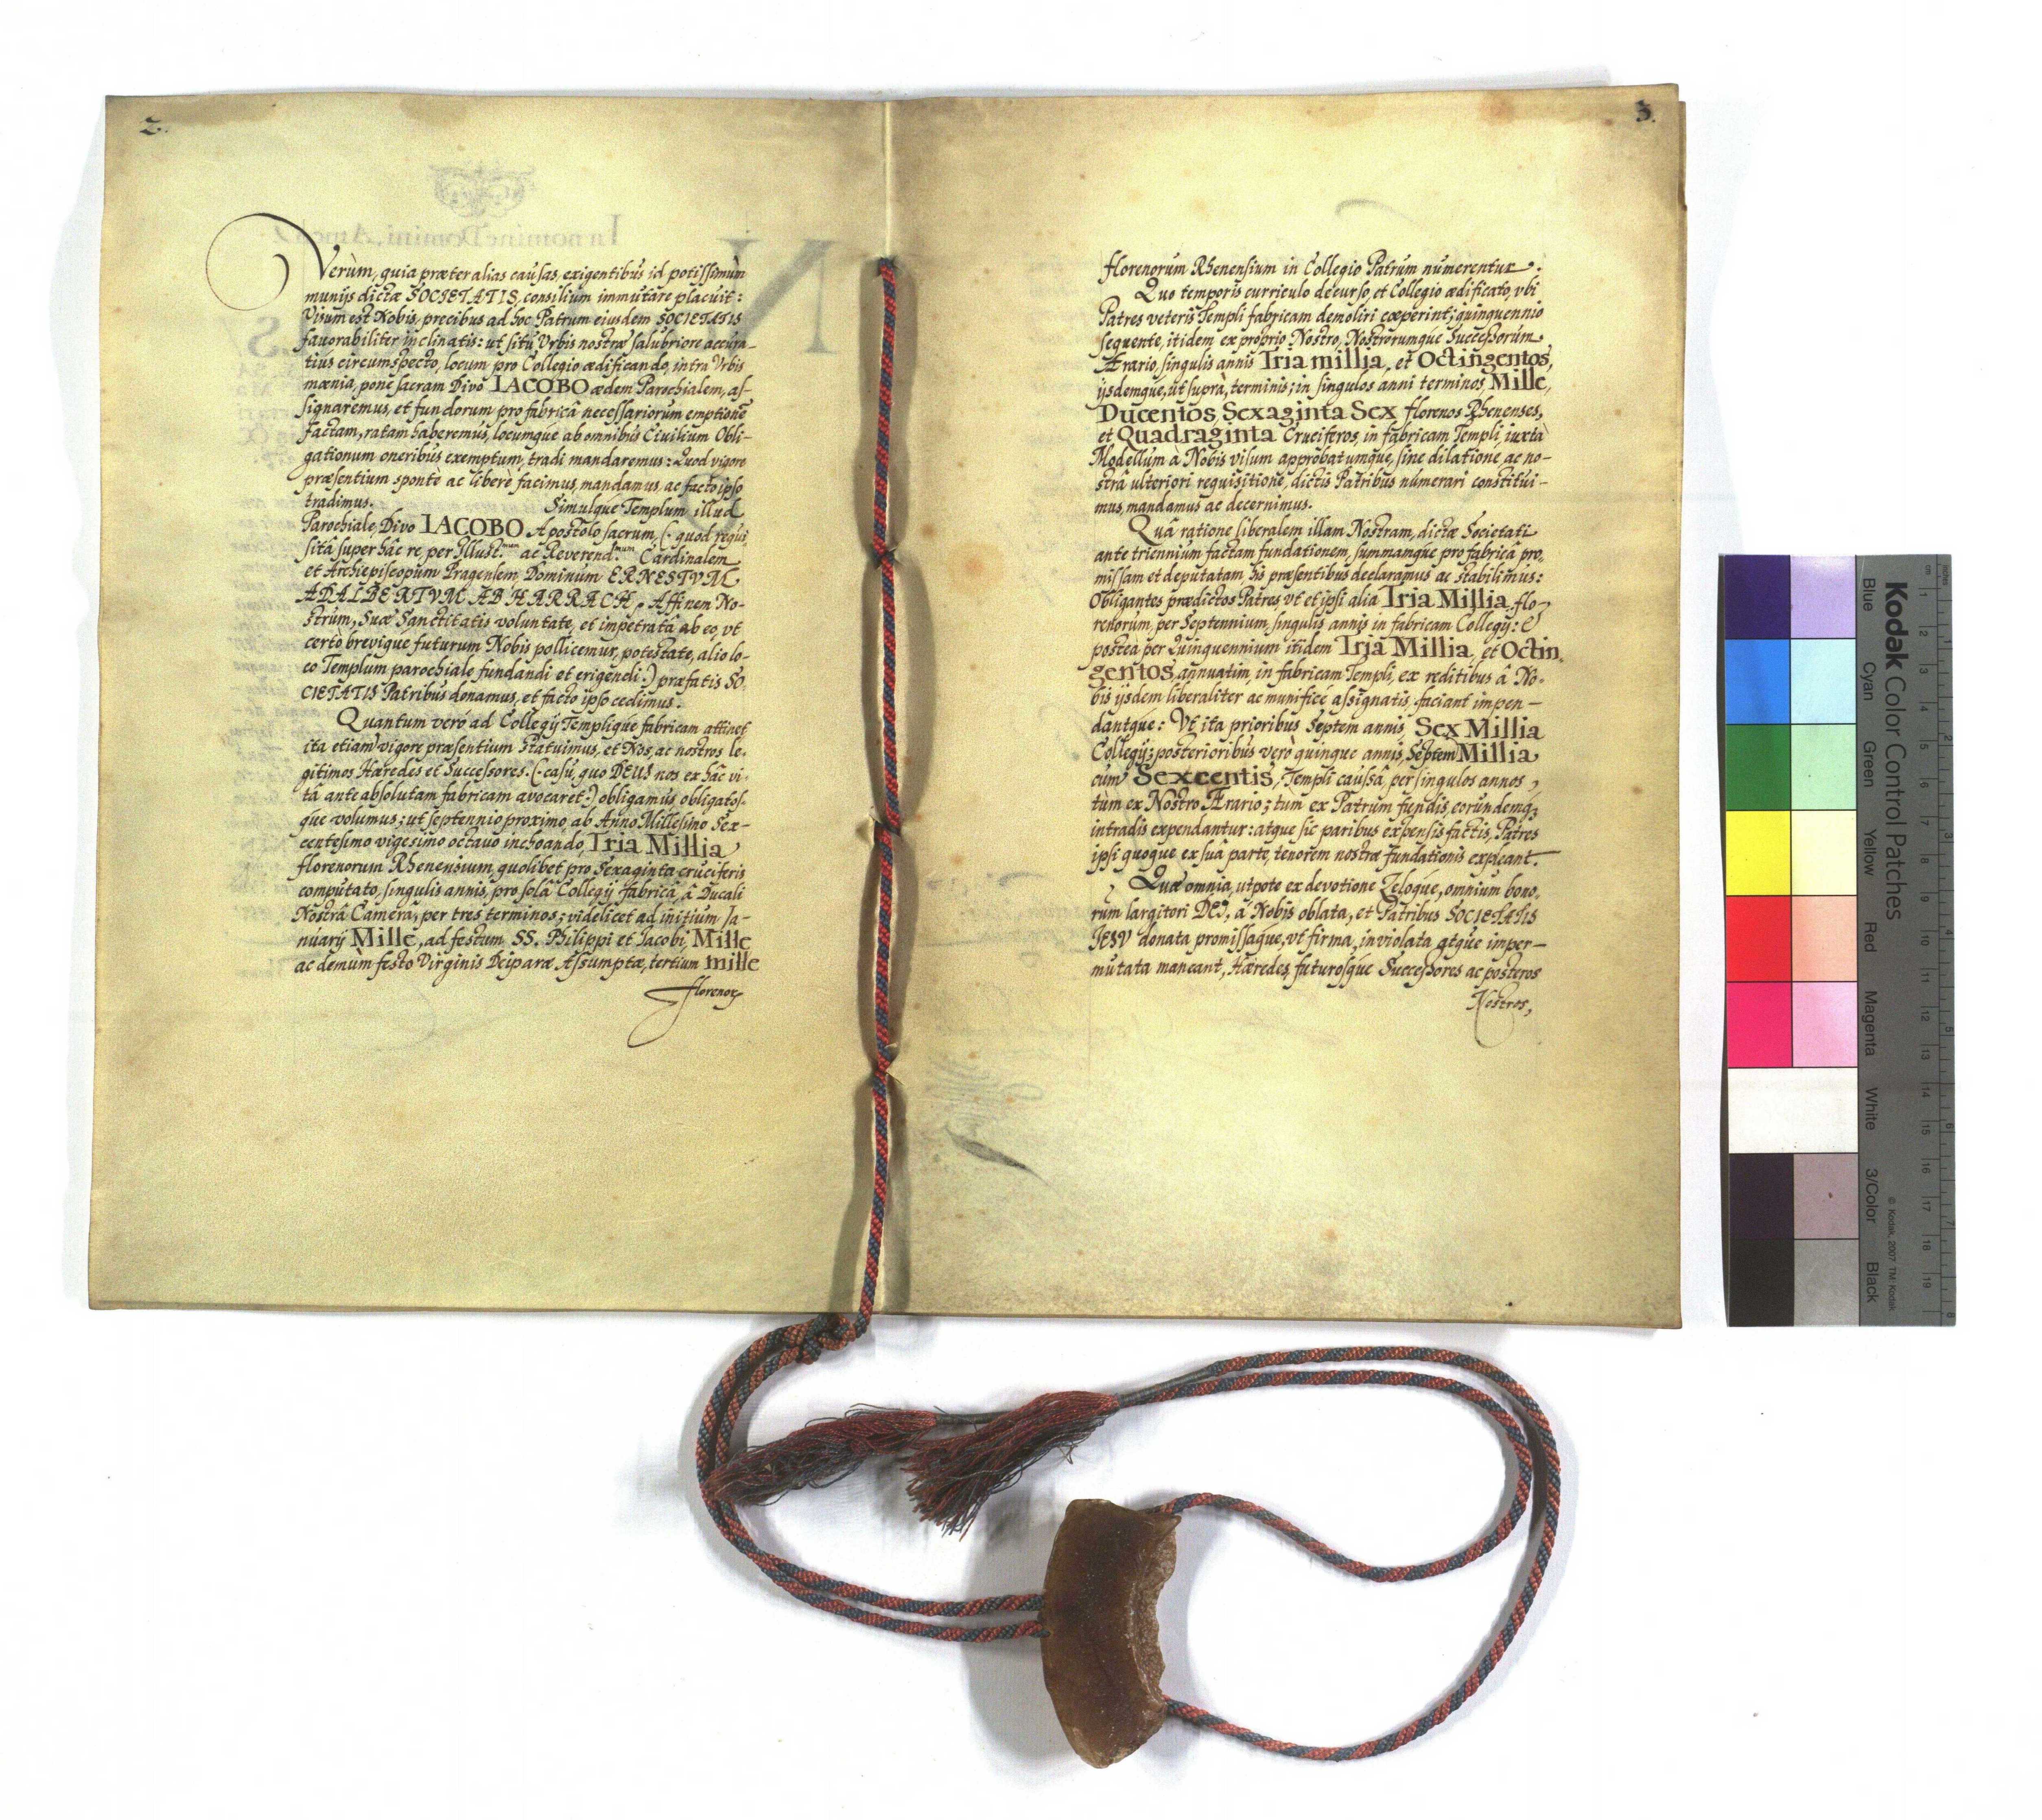 2.
Verùm, quia præter alias causas, exigentibus id potissimùm
munijs dictæ SOCIETATIS, consilium immutare placuit:
Visum est Nobis, precibus ad hoc Patrum eiusdem SOCIETATIS
fauorabiliter inclinatis: ut situ Vrbis nostræ salubriore accura-
tius circumspecto, locum pro Collegio ædificando, intra Vrbis
mænia, pone sacram Divo IACOBO ædem Parochialem, as-
signaremus, et fundorum pro fabricâ necessariorum emptionē
factam, ratam haberemus, locumque ab omnibus Ciuilium Obli-
gationum oneribus exemptum, tradi mandaremus: Quod vigore
præsentium spontè ac liberè facimus, mandamus, ac facto ipso
tradimus. Simulque Templum illud
Parochiale, Divo IACOBO Apostolo sacrum, (: quod requi
sitâ super hâc re, per Illust.mum ac Reverend.mum Cardinalem
et Archiepiscopum Pragensem Dominum ERNESTVM
ADALBERTVM AB HARRACH, Affinem No-
strum, Suæ Sanctitatis voluntate, et impetratâ ab eo, vt
certò brevique futurum Nobis pollicemur, potestate, alio lo-
co Templum parochiale fundandi et erigendi:) præfatis SO-
CIETATIS Patribus donamus, et facto ipso cedimus.
Quantum verò ad Collegij Templique fabricam attinet
ita etiam vigore præsentium statuimus, et Nos ac nostros le-
gitimos Hæredes et Successores. (: casu, quo DEUS nos ex hâc vi-
tâ ante absolutam fabricam avocaret:) obligamus obligatos-
que volumus; ut septennio proximo ab Anno Millesimo Sex-
centesimo vigesimo octauo inchoando, Tria Millia
florenorum Rhenensium, quolibet pro Sexaginta cruciferis
computato, singulis annis, pro solâ Collegij fabricâ, â Ducali
Nostrâ Camera, per tres terminos; videlicet ad initium Ja-
nuarij Mille, ad festum SS. Philippi et Jacobi, Mille
ac demùm festo Virginis Deiparæ Assumptæ, tertium mille
florenor
3.
florenorum Rhenensium in Collegio Patrum numerentur.
Quo temporis curriculo decurso, et Collegio ædificato, vbi
Patres veteris Templi fabricam demoliri cœperint; quinquennio
sequente, itidem ex proprio Nostro, Nostrorumque Successorum
Ærario, singulis annis Tria millia, et Octingentos,
ijsdemque, ut suprà, terminis; in singulos anni terminos Mille,
Ducentos, Sexaginta Sex florenos Rhenenses,
et Quadraginta Cruciferos, in fabricam Templi, iuxtà
Modellum à Nobis visum approbatumque, sine dilatione, ac no-
strâ ulteriori requisitione, dictis Patribus numerari constitui-
mus, mandamus ac decernimus.
Quâ ratione liberalem illam Nostram, dictæ Societati
ante triennium factam fundationem, summamque pro fabricâ pro-
missam et deputatam, his præsentibus declaramus ac stabilimus:
Obligantes prædictos Patres vt et ipsi alia Tria Millia flo-
renorum, per Septennium, singulis annis in fabricam Collegij: &
posteà per Quinquennium itidem Tria Millia, et Octin
gentos, annuatim, in fabricam Templi, ex reditibus â No-
bis ijsdem liberaliter ac munificè assignatis, faciant impen-
dantque: Vt ita prioribus Septem annis, Sex Millia
Collegij; posterioribus verò quinque annis, Septem Millia
cum Sexcentis, Templi caussâ, per singulos annos,
tùm ex Nostro Ærario; tùm ex Patrum fundis, eorundemq;
intradis expendantur: atque sic paribus expensis factis, Patres
ipsi quoque ex suâ parte, tenorem nostræ fundationis expleant.
Quæ omnia, utpote ex devotione Zeloque, omnium bono-
rum largitori DEI, à Nobis oblata, et Patribus SOCIETATIS
JESV donata promissaque, vt firma, inviolata atque imper-
mutata maneant, Hæredes, futurosque Successores ac posteros
Nostros,
Kodak Color Control Patches
Blue Cyan Green Yellow Red Magenta White 3/Color Black
© Kodak, 2007 TM: Kodak
cm 1 2 3 4 5 6 7 8 9 10 11 12 13 14 15 16 17 18 19
inches 1 2 3 4 5 6 7 8